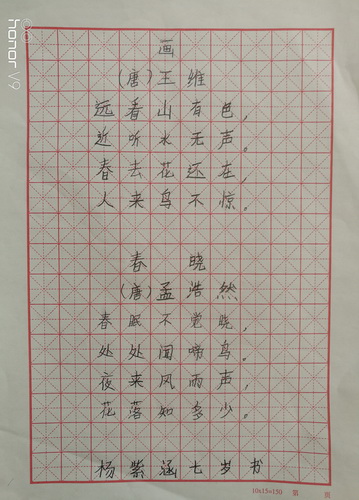 honor V9
画
(唐)王维
远看山有色，
近听水无声。
春去花还在，
人来鸟不惊。
春晓
(唐)孟浩然
春眠不觉晓，
处处闻啼鸟。
夜来风雨声，
花落知多少。
杨紫涵七岁书
10x15=150 第 页